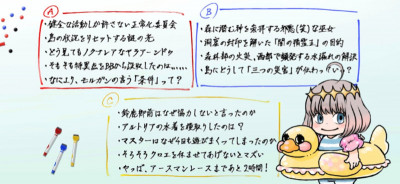 A
・健全な活動しか許さない正常化委員会
・島の状況をリセットする謎の光
・どう見てもノクナレアなサラアーンドゥ
・そもそも特異点をBBから没収したのは......
・なにより、モルガンの言う「条件」って?
B
・森に潜む神を崇拝する邪悪(笑)な巫女
・洞窟の封印を解いた「闇の精霊王」の目的
・森林部の火災、西部で頻発する水漏れの解決
・島にどうして「三つの災害」が伝わっているの?
C
・鈴鹿御前はなぜ協力しないと言ったのか
・アルトリアの水着を横取りしたのは?
・マスターはなぜ今日も遊びまくってしまったのか
・そろそろクロエを休ませてあげないとマズい
・ヤッば、アースマンレースまであと2時間!